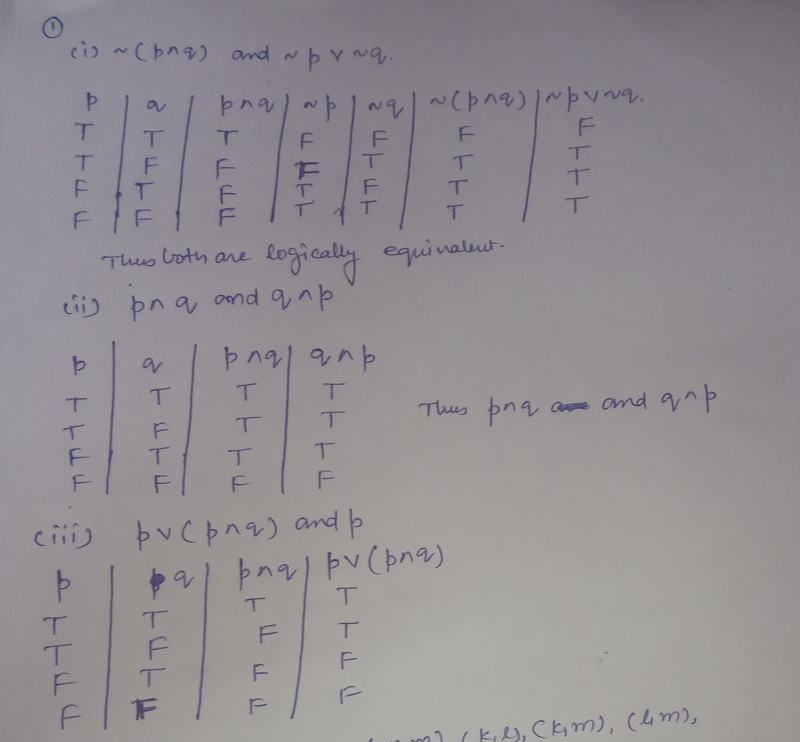 ①
(i) ~(p∧q) and ~p ∨ ~q.
p | q | p∧q | ~p | ~q | ~(p∧q) | ~p∨~q.
T | T | T | F | F | F | F
T | F | F | F | T | T | T
F | T | F | T | F | T | T
F | F | F | T | T | T | T
Thus both are logically equivalent.
(ii) p∧q and q∧p
p | q | p∧q | q∧p
T | T | T | T
T | F | T | T
F | T | T | T
F | F | F | F
Thus p∧q and q∧p
(iii) p∨(p∧q) and p
p | q | p∧q | p∨(p∧q)
T | T | T | T
T | F | F | T
F | T | F | F
F | F | F | F
(k,m), (l,m),